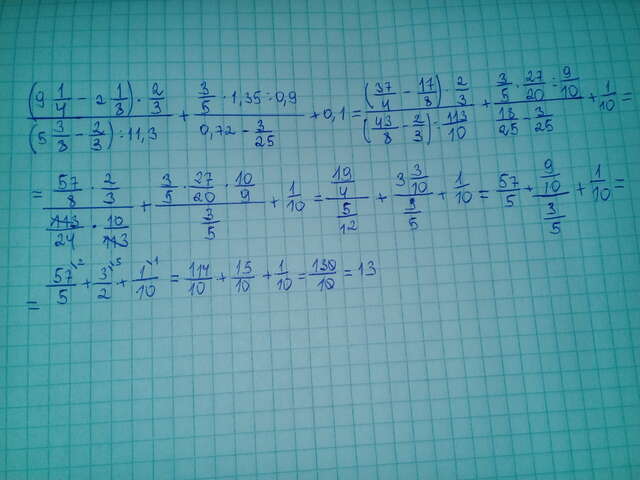 ((9 1/4 - 2 1/8) · 2/3)/((5 3/8 - 2/3) : 11,3) + (3/5 · 1,35 : 0,9)/(0,72 - 3/25) + 0,1 = ((37/4 - 17/8) · 2/3)/((43/8 - 2/3) : 113/10) + (3/5 · 27/20 : 9/10)/(18/25 - 3/25) + 1/10 =
= (57/8 · 2/3)/(113/24 · 10/113) + (3/5 · 27/20 · 10/9)/(3/5) + 1/10 = (19/4)/(5/12) + (3·3/10)/(3/5) + 1/10 = 57/5 + (9/10)/(3/5) + 1/10 =
= 57/5 \2 + 3/2 \5 + 1/10 \1 = 114/10 + 15/10 + 1/10 = 130/10 = 13